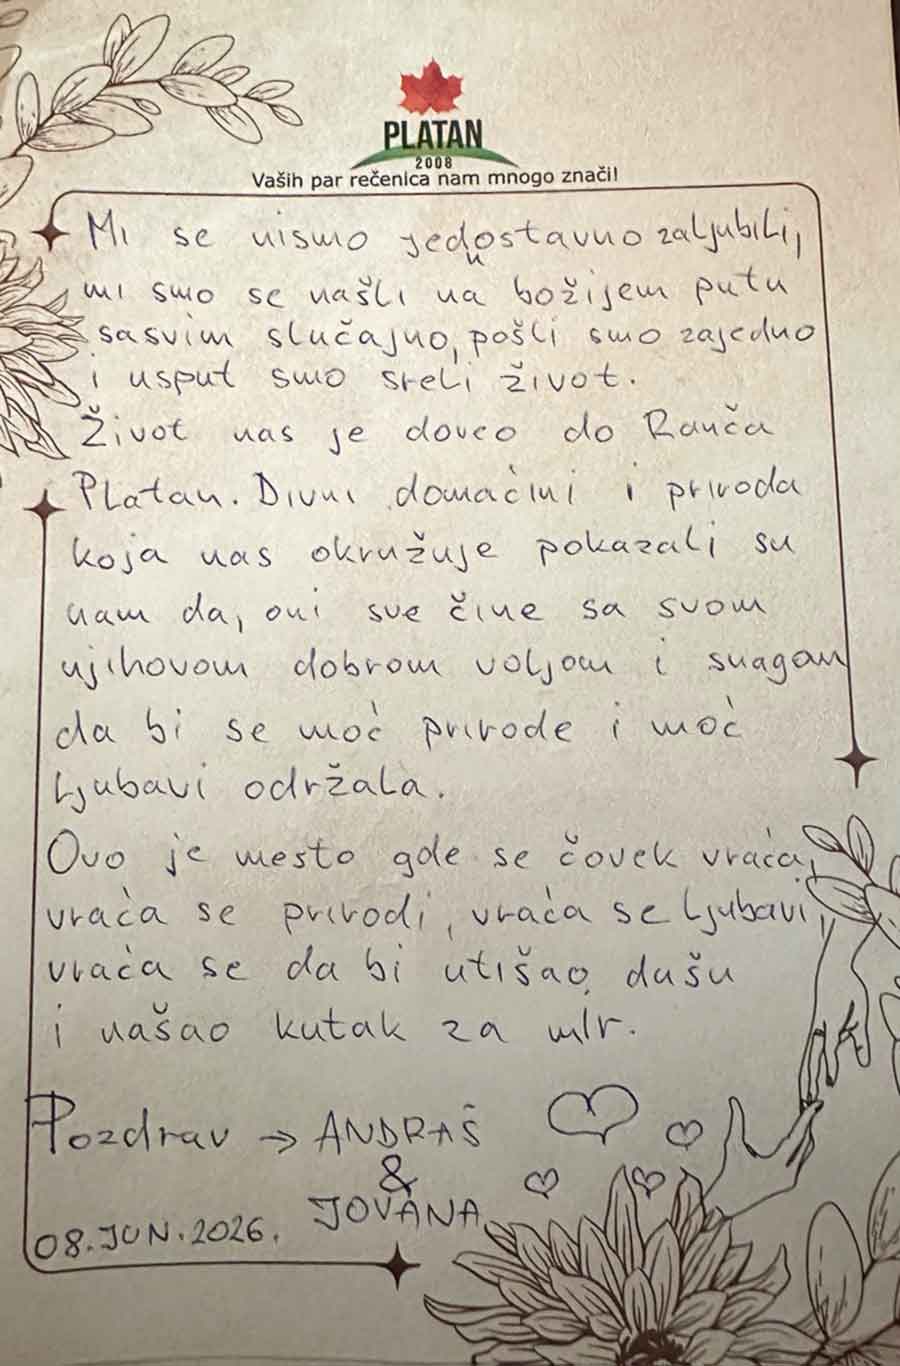 PLATAN
2008
Vaših par rečenica nam mnogo znači!
Mi se nismo jednostavno zaljubili,
mi smo se našli na božijem putu
sasvim slučajno, pošli smo zajedno
i usput smo sreli život.
Život nas je doveo do Ranča
Platan. Divni domaćini i priroda
koja nas okružuje pokazali su
nam da, oni sve čine sa svom
njihovom dobrom voljom i snagom
da bi se moć prirode i moć
ljubavi održala.
Ovo je mesto gde se čovek vraća,
vraća se prirodi, vraća se ljubavi,
vraća se da bi utišao dušu
i našao kutak za mir.
Pozdrav → ANDRAŠ
&
JOVANA
08.JUN.2026.